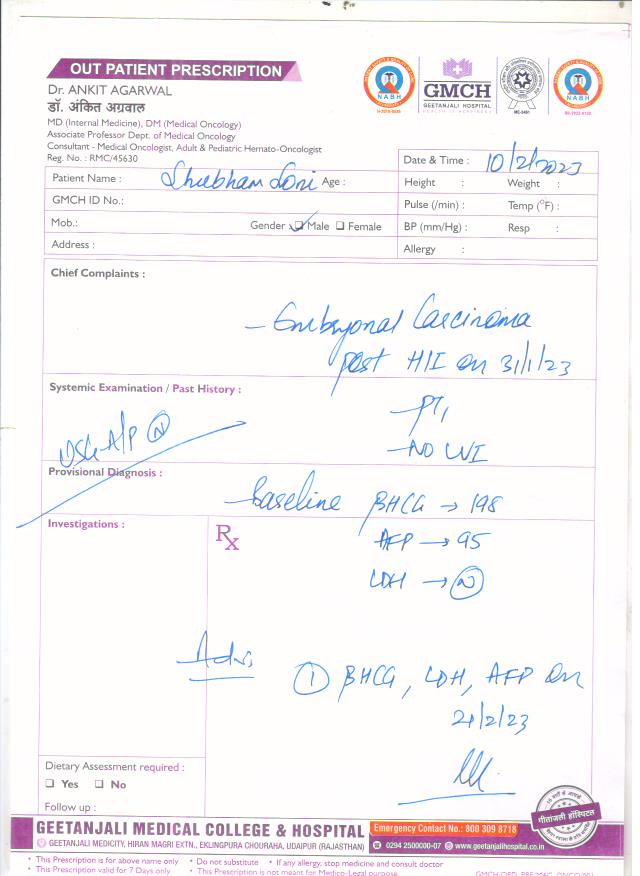 OUT PATIENT PRESCRIPTION
Dr. ANKIT AGARWAL
डॉ. अंकित अग्रवाल
MD (Internal Medicine), DM (Medical Oncology)
Associate Professor Dept. of Medical Oncology
Consultant - Medical Oncologist, Adult & Pediatric Hemato-Oncologist
Reg. No. : RMC/45630
NABH
GMCH
GEETANJALI HOSPITAL
NABH
Date & Time : 10/2/2023
Patient Name : Shubham Soni Age :
Height : Weight :
GMCH ID No.:
Pulse (/min) : Temp (°F) :
Mob.: Gender : Male Female
BP (mm/Hg) : Resp :
Address :
Allergy :
Chief Complaints :
- Embryonal Carcinoma
post HII on 31/1/23
Systemic Examination / Past History :
- PT1
- NO LVI
USG A/P (N)
Provisional Diagnosis :
Baseline BHCG → 198
Investigations :
Rx
AFP → 95
LDH → (N)
Adv,
① BHCG, LDH, AFP on
21/2/23
Dietary Assessment required :
Yes No
Follow up :
गीतांजली हॉस्पिटल
GEETANJALI MEDICAL COLLEGE & HOSPITAL
Emergency Contact No.: 800 309 8718
GEETANJALI MEDICITY, HIRAN MAGRI EXTN., EKLINGPURA CHOURAHA, UDAIPUR (RAJASTHAN)
0294 2500000-07 www.geetanjalihospital.co.in
• This Prescription is for above name only • Do not substitute • If any allergy, stop medicine and consult doctor
• This Prescription valid for 7 Days only • This Prescription is not meant for Medico-Legal purpose.